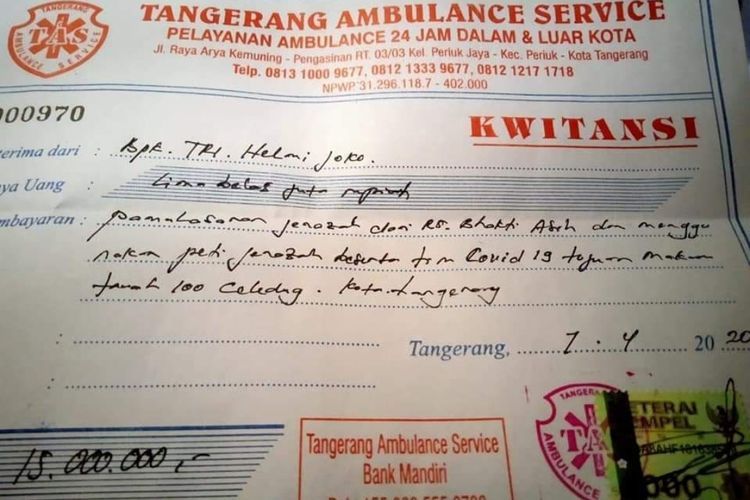 TANGERANG AMBULANCE SERVICE
PELAYANAN AMBULANCE 24 JAM DALAM & LUAR KOTA
Jl. Raya Arya Kemuning - Pengasinan RT. 03/03 Kel. Periuk Jaya - Kec. Periuk - Kota Tangerang
Telp. 0813 1000 9677, 0812 1333 9677, 0812 1217 1718
NPWP 31.296.118.7 - 402.000
TANGERANG
TAS
AMBULANCE SERVICE
000970
KWITANSI
terima dari : Bpk. TRI. Helmi Joko.
nya Uang : Lima belas juta rupiah
mbayaran : pemulasaran jenazah dari RS. Bhakti Asih dan menggu
nakan peti jenazah beserta tim Covid 19 tujuan makam
tanah 100 Celedug. Kota tangerang
Tangerang, 7 - 4 20 20
15.000.000,-
Tangerang Ambulance Service
Bank Mandiri
TANGERANG
TA
ETERAI
EMPEL
000